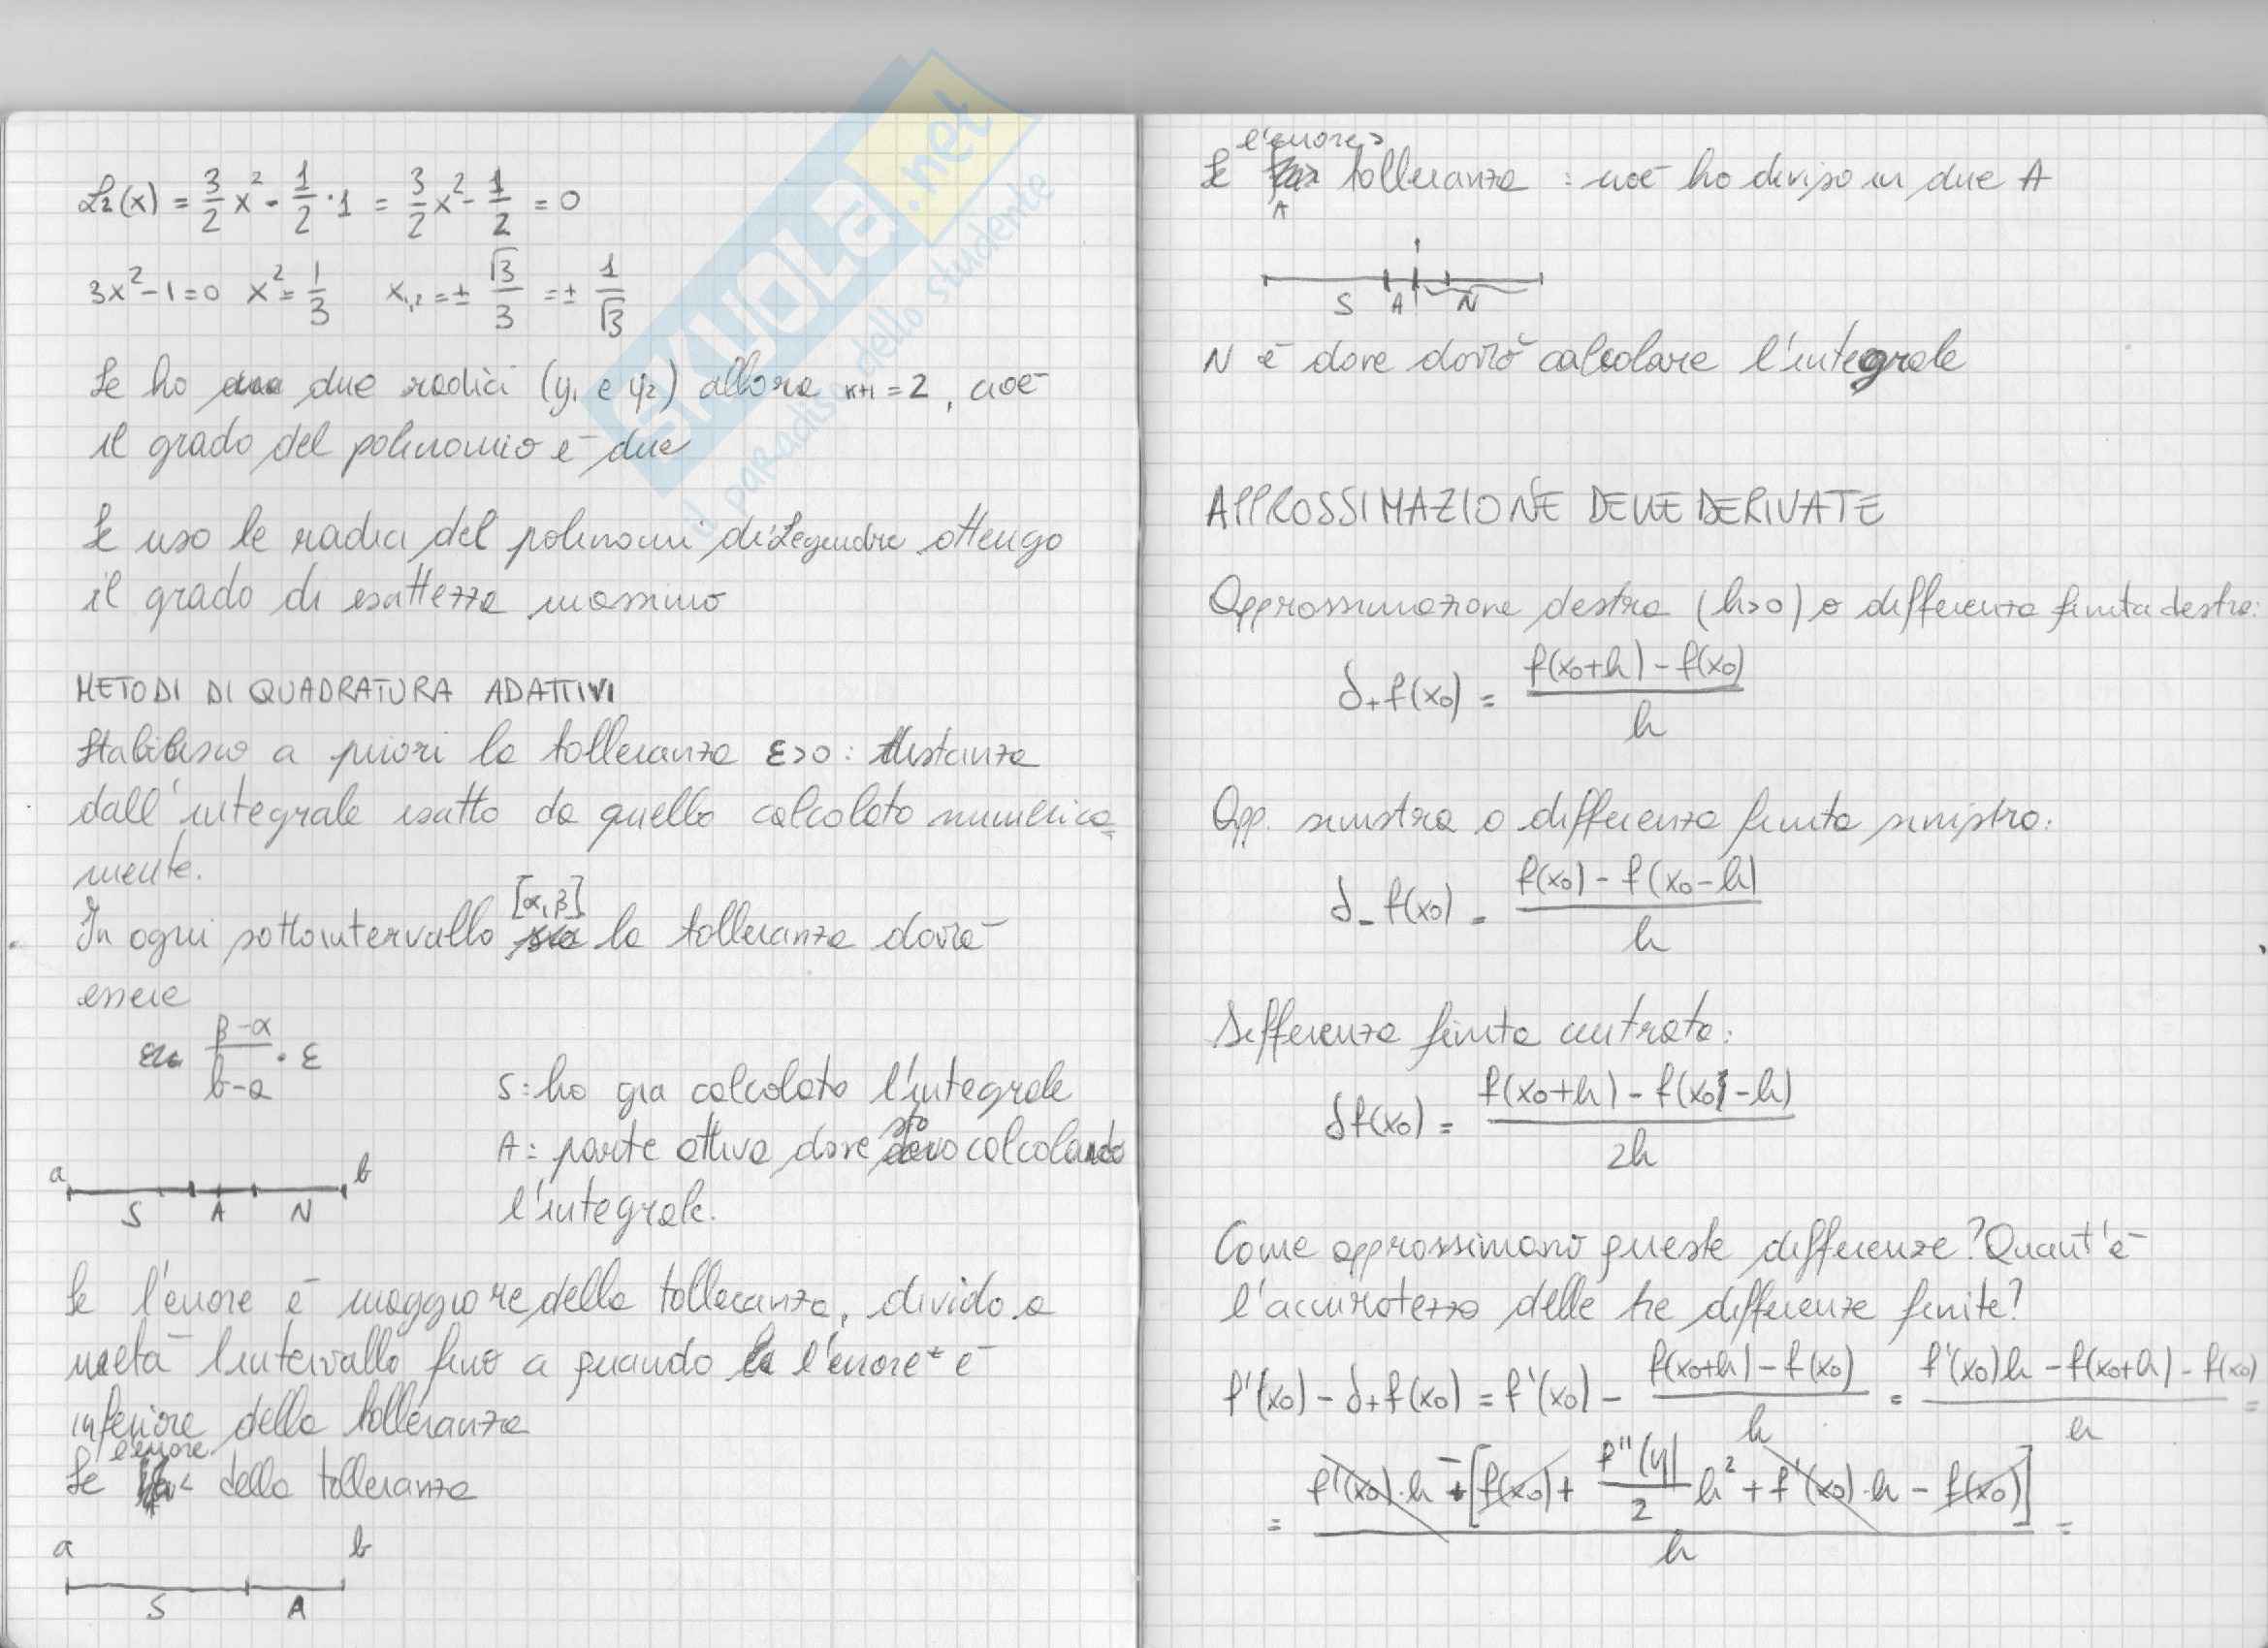 L₂(x) = 3/2 x² - 1/2 · 1 = 3/2 x² - 1/2 = 0
3x² - 1 = 0 x² = 1/3 x₁,₂ = ± √3/3 = ± 1/√3
Se ho due radici (y₁ e y₂) allora n+1 = 2, cioè
il grado del polinomio è due
Se uso le radici del polinomi di Legendre ottengo
il grado di esattezza massimo
METODI DI QUADRATURA ADATTIVI
Stabilisco a priori la tolleranza ε>0: distanza
dall'integrale esatto da quello calcolato numerica-
mente.
In ogni sottointervallo [α, β] la tolleranza dovrà
essere
β-α/b-a · ε
S: ho già calcolato l'integrale
A: parte attiva dove sto calcolando
l'integrale.
a b
S A N
Se l'errore è maggiore della tolleranza, divido a
metà l'intervallo fino a quando l'errore è
inferiore della tolleranza
Se l'errore < della tolleranza
a b
S A
Se l'errore > tolleranza: cioè ho diviso in due A
S A N
N è dove dovrò calcolare l'integrale
APPROSSIMAZIONE DELLE DERIVATE
Approssimazione destra (h>0) o differenza finita destra:
δ₊f(x₀) = f(x₀+h) - f(x₀)/h
App. sinistra o differenza finita sinistra:
δ₋f(x₀) = f(x₀) - f(x₀-h)/h
Differenza finita centrata:
δf(x₀) = f(x₀+h) - f(x₀-h)/2h
Come approssimano queste differenze? Quant'è
l'accuratezza delle tre differenze finite?
f'(x₀) - δ₊f(x₀) = f'(x₀) - f(x₀+h) - f(x₀)/h = f'(x₀)h - f(x₀+h) - f(x₀)/h =
= f'(x₀)·h - [f(x₀) + f''(y)/2 h² + f'(x₀)·h - f(x₀)]/h =
SKUOLA.net
il paradiso dello studente